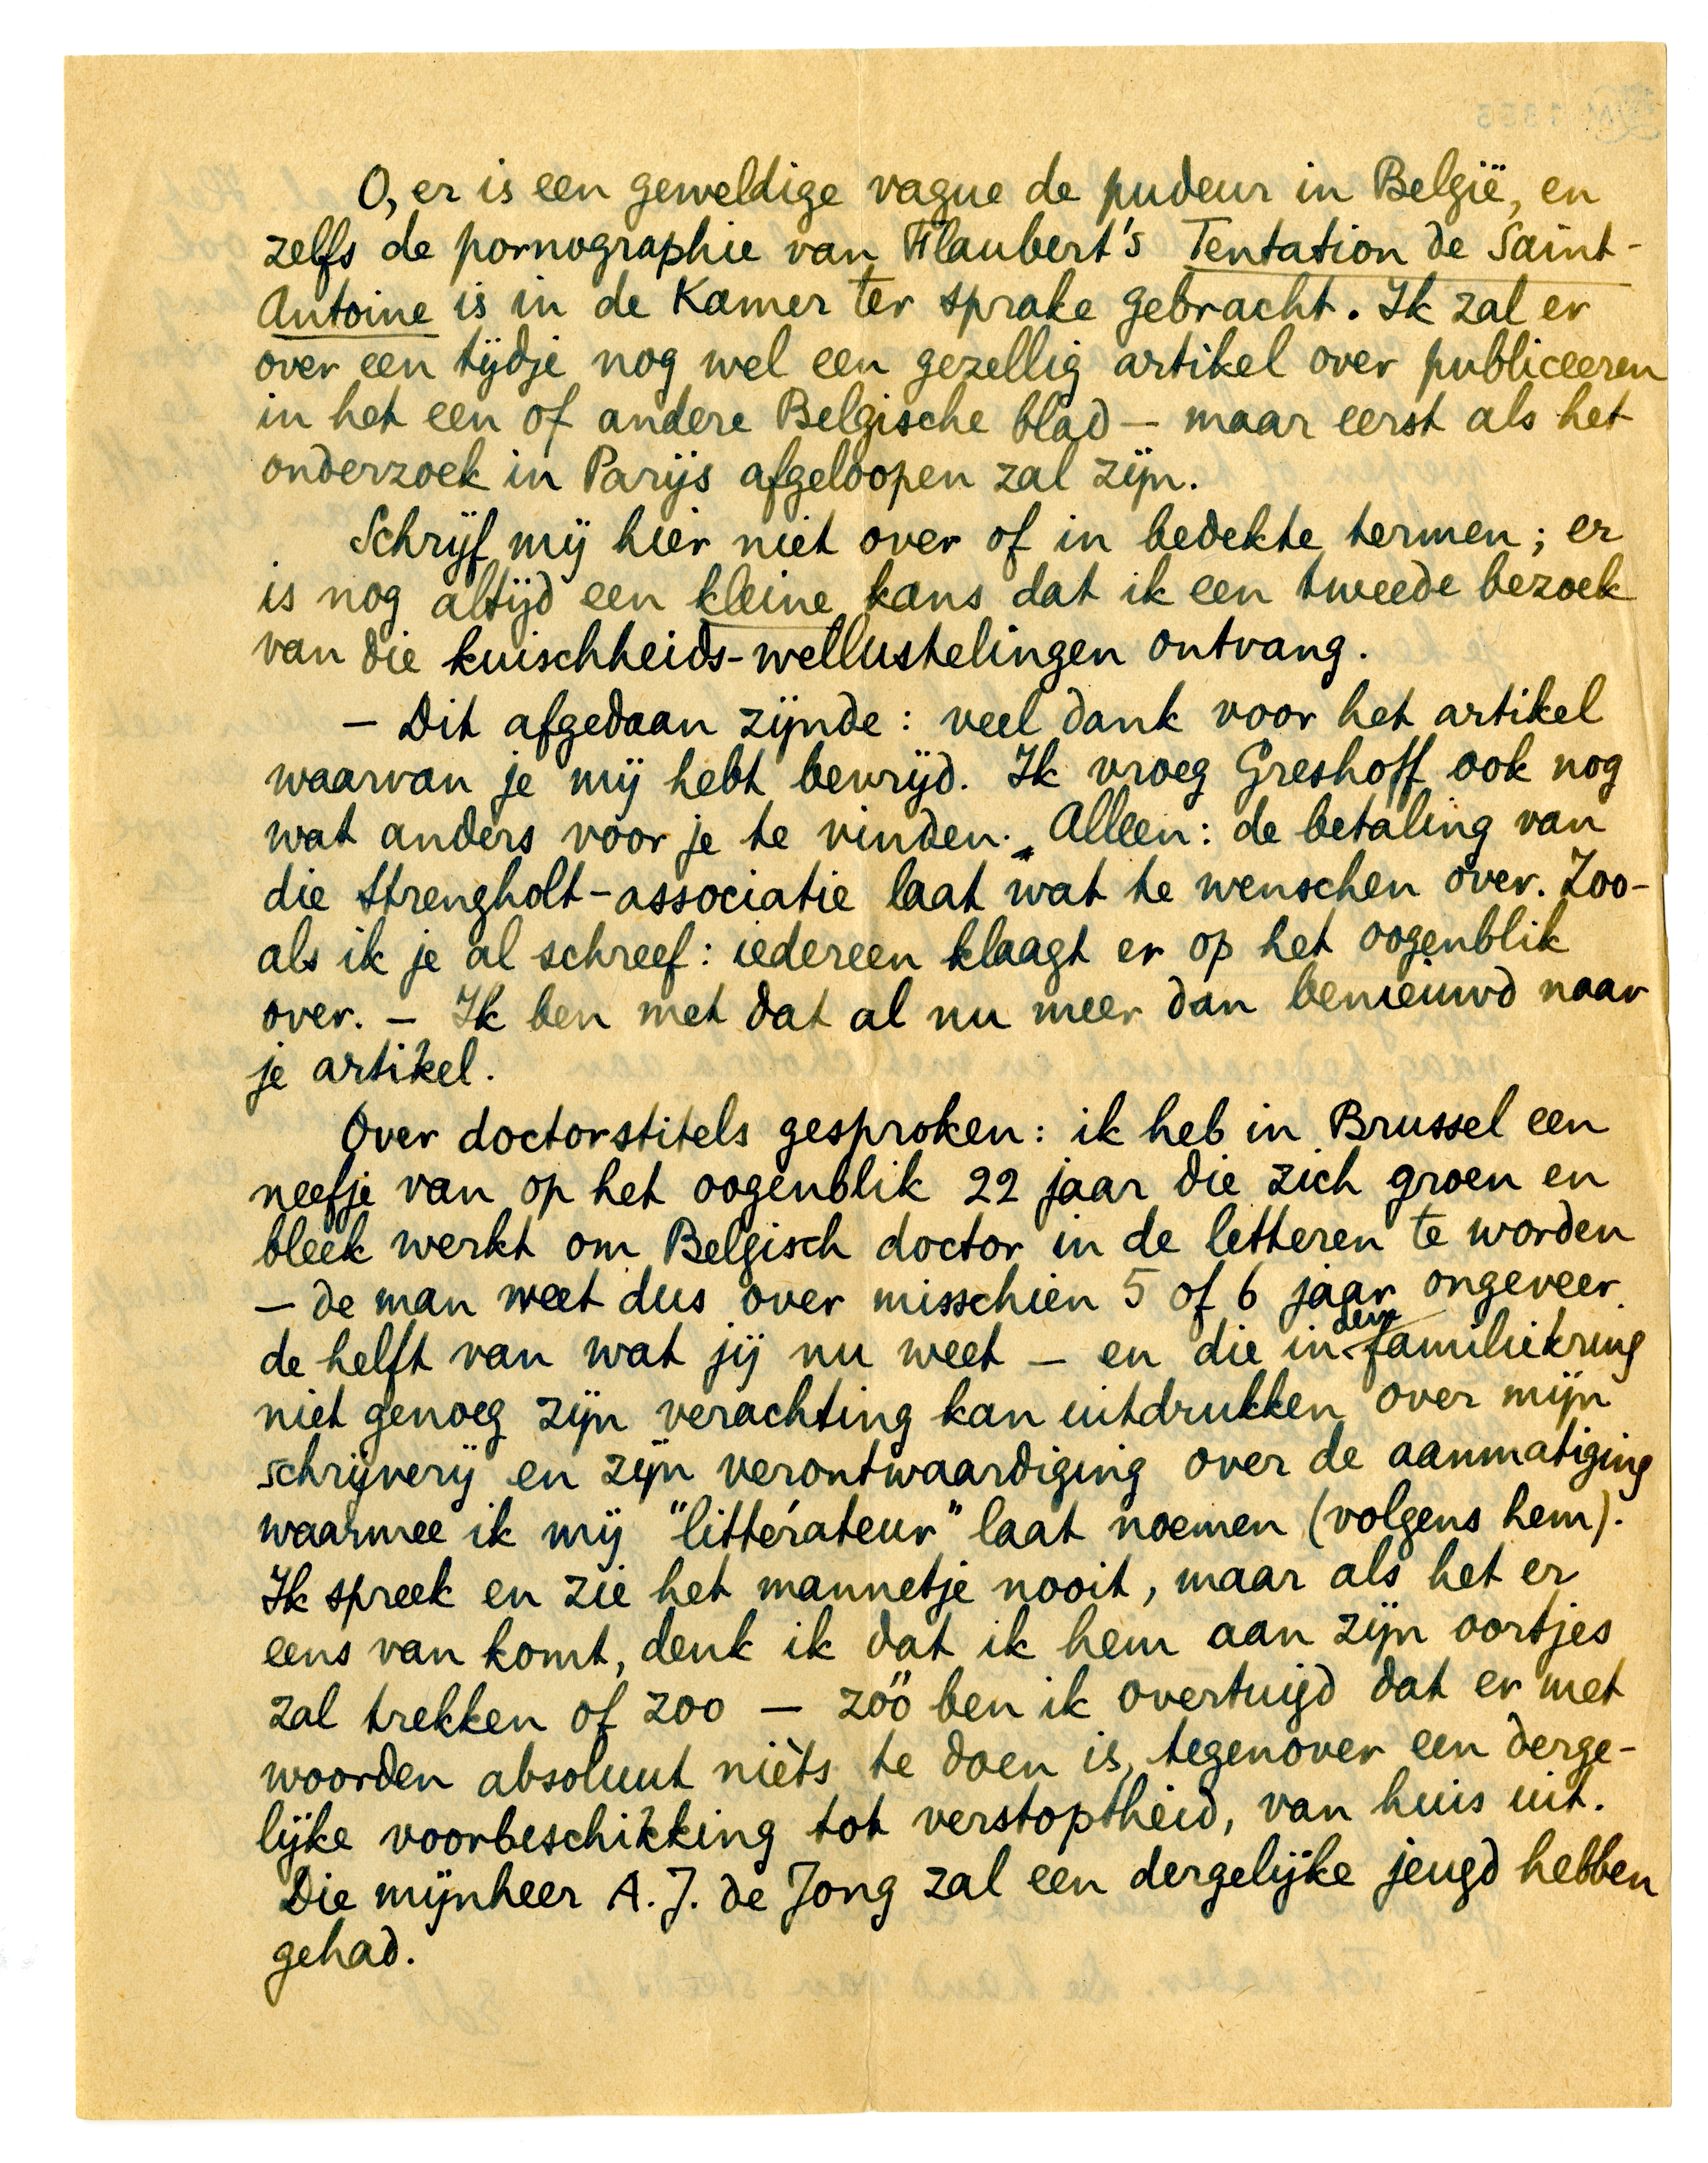 O, er is een geweldige vague de pudeur in België, en
zelfs de pornographie van Flaubert's Tentation de Saint-
Antoine is in de Kamer ter sprake gebracht. Ik zal er
over een tijdje nog wel een gezellig artikel over publiceeren
in het een of andere Belgische blad — maar eerst als het
onderzoek in Parijs afgeloopen zal zijn.
Schrijf mij hier niet over of in bedekte termen; er
is nog altijd een kleine kans dat ik een tweede bezoek
van die kuischheids-wellustelingen ontvang.
— Dit afgedaan zijnde: veel dank voor het artikel
waarvan je mij hebt bevrijd. Ik vroeg Greshoff ook nog
wat anders voor je te vinden. Alleen: de betaling van
die Strengholt-associatie laat wat te wenschen over. Zoo-
als ik je al schreef: iedereen klaagt er op het oogenblik
over. — Ik ben met dat al nu meer dan benieuwd naar
je artikel.
Over doctorstitels gesproken: ik heb in Brussel een
neefje van op het oogenblik 22 jaar die zich groen en
bleek werkt om Belgisch doctor in de letteren te worden
— de man weet dus over misschien 5 of 6 jaar ongeveer
de helft van wat jij nu weet — en die in den familiekring
niet genoeg zijn verachting kan uitdrukken over mijn
schrijverij en zijn verontwaardiging over de aanmatiging
waarmee ik mij "littérateur" laat noemen (volgens hem).
Ik spreek en zie het mannetje nooit, maar als het er
eens van komt, denk ik dat ik hem aan zijn oortjes
zal trekken of zoo — zóó ben ik overtuigd dat er met
woorden absoluut nièts te doen is, tegenover een derge-
lijke voorbeschikking tot verstoptheid, van huis uit.
Die mijnheer A. J. de Jong zal een dergelijke jeugd hebben
gehad.